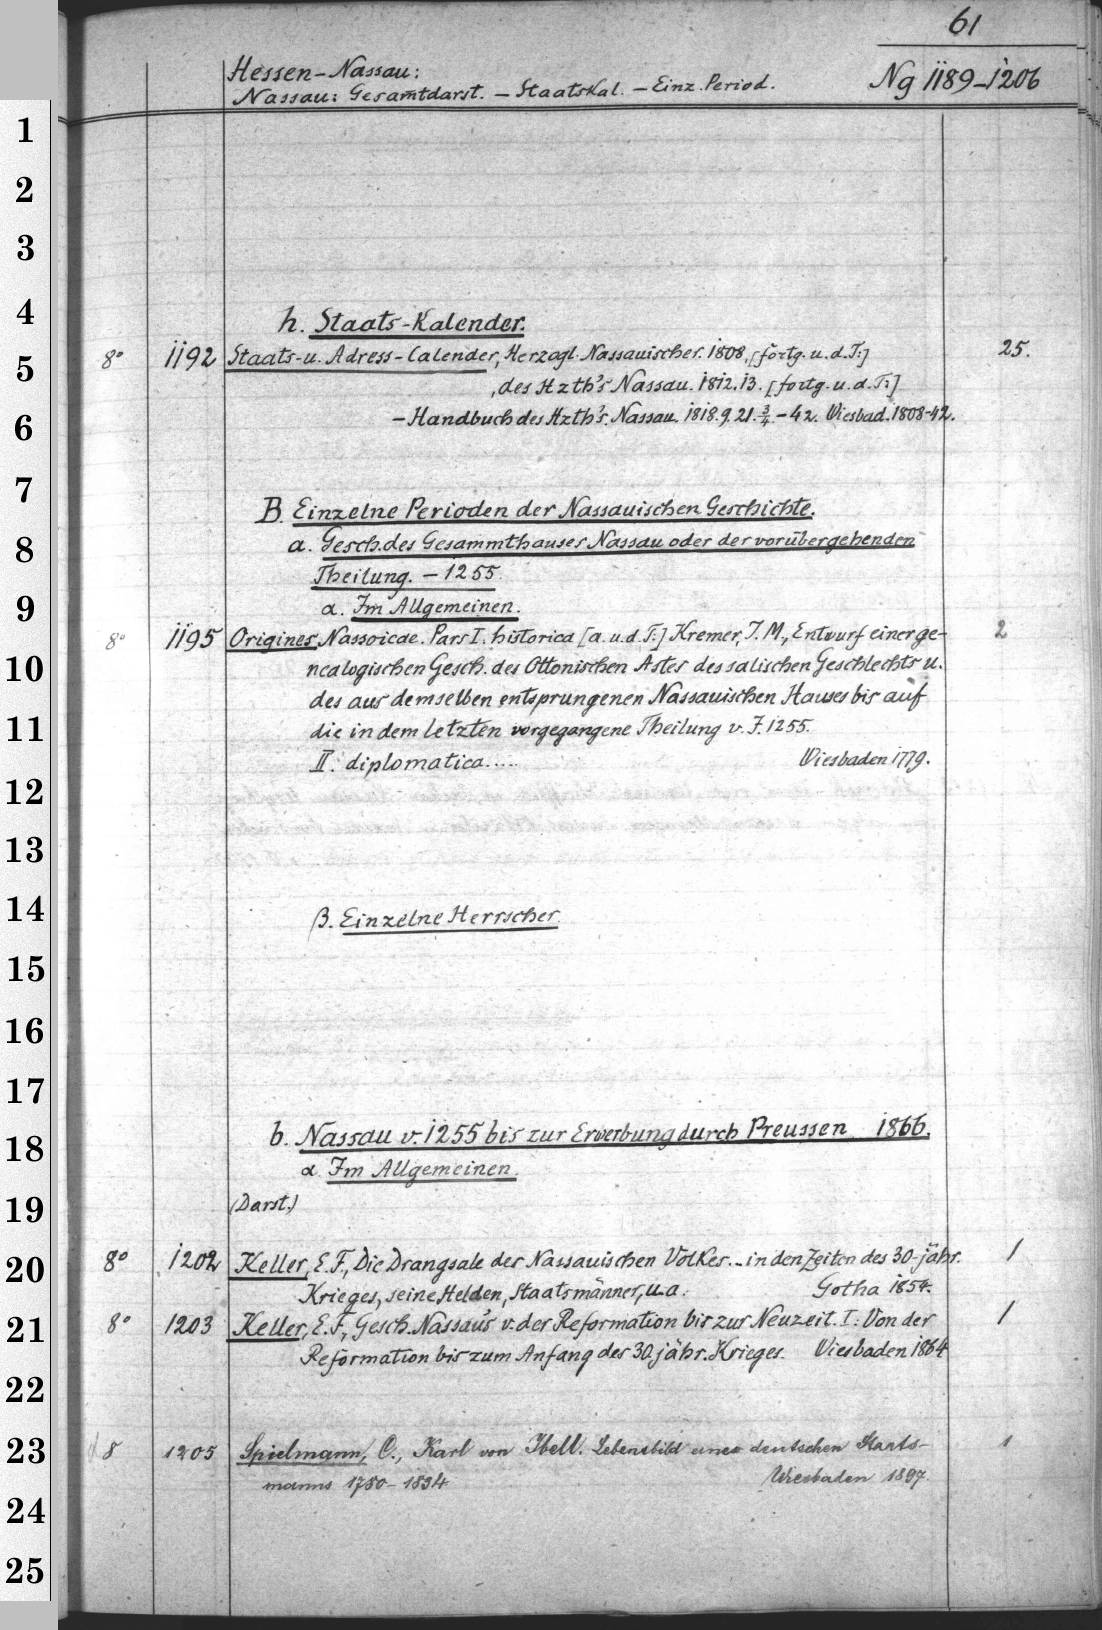 61
Hessen-Nassau:
Nassau: Gesamtdarst. – StaatsKal. – Einz. Period. Ng 1189–1206
1
2
3
4
h. Staats-Kalender.
5
8° 1192 Staats- u. Adress-Calender, Herzogl. Nassauischer. 1808. [fortg. u. d. T:] 25.
, des Hzth's Nassau. 1812. 13. [fortg. u. d. T:]
6
– Handbuch des Hzth's. Nassau. 1818. 9. 21. 3/4 – 42. Wiesbad. 1808-42.
7
B. Einzelne Perioden der Nassauischen Geschichte.
8
a. Gesch. des Gesammthauses Nassau oder der vorübergehenden
Theilung. – 1255.
9
α. Im Allgemeinen.
8° 1195 Origines Nassoicae. Pars I. historica [a. u. d. T:] Kremer, J. M., Entwurf einer ge- 2
10
nealogischen Gesch. des Ottonischen Astes des salischen Geschlechts u.
des aus demselben entsprungenen Nassauischen Hauses bis auf
11
die in dem letzten vorgegangene Theilung v. J. 1255.
II. diplomatica..... Wiesbaden 1779.
12
13
14
β. Einzelne Herrscher.
15
16
17
18
b. Nassau v. 1255 bis zur Erwerbung durch Preussen 1866.
α. Im Allgemeinen.
19
(Darst.)
20
8° 1202 Keller, E. F., Die Drangsale des Nassauischen Volkes... in den Zeiten des 30-jähr. 1
Krieges, seine Helden, Staatsmänner, u. a. Gotha 1854.
21
8° 1203 Keller, E. F., Gesch. Nassau's v. der Reformation bis zur Neuzeit. I: Von der 1
Reformation bis zum Anfang des 30 jähr. Krieges. Wiesbaden 1864
22
23
8 1205 Spielmann, C., Karl von Ibell. Lebensbild eines deutschen Staats- 1
manns 1780–1834 Wiesbaden 1897.
24
25